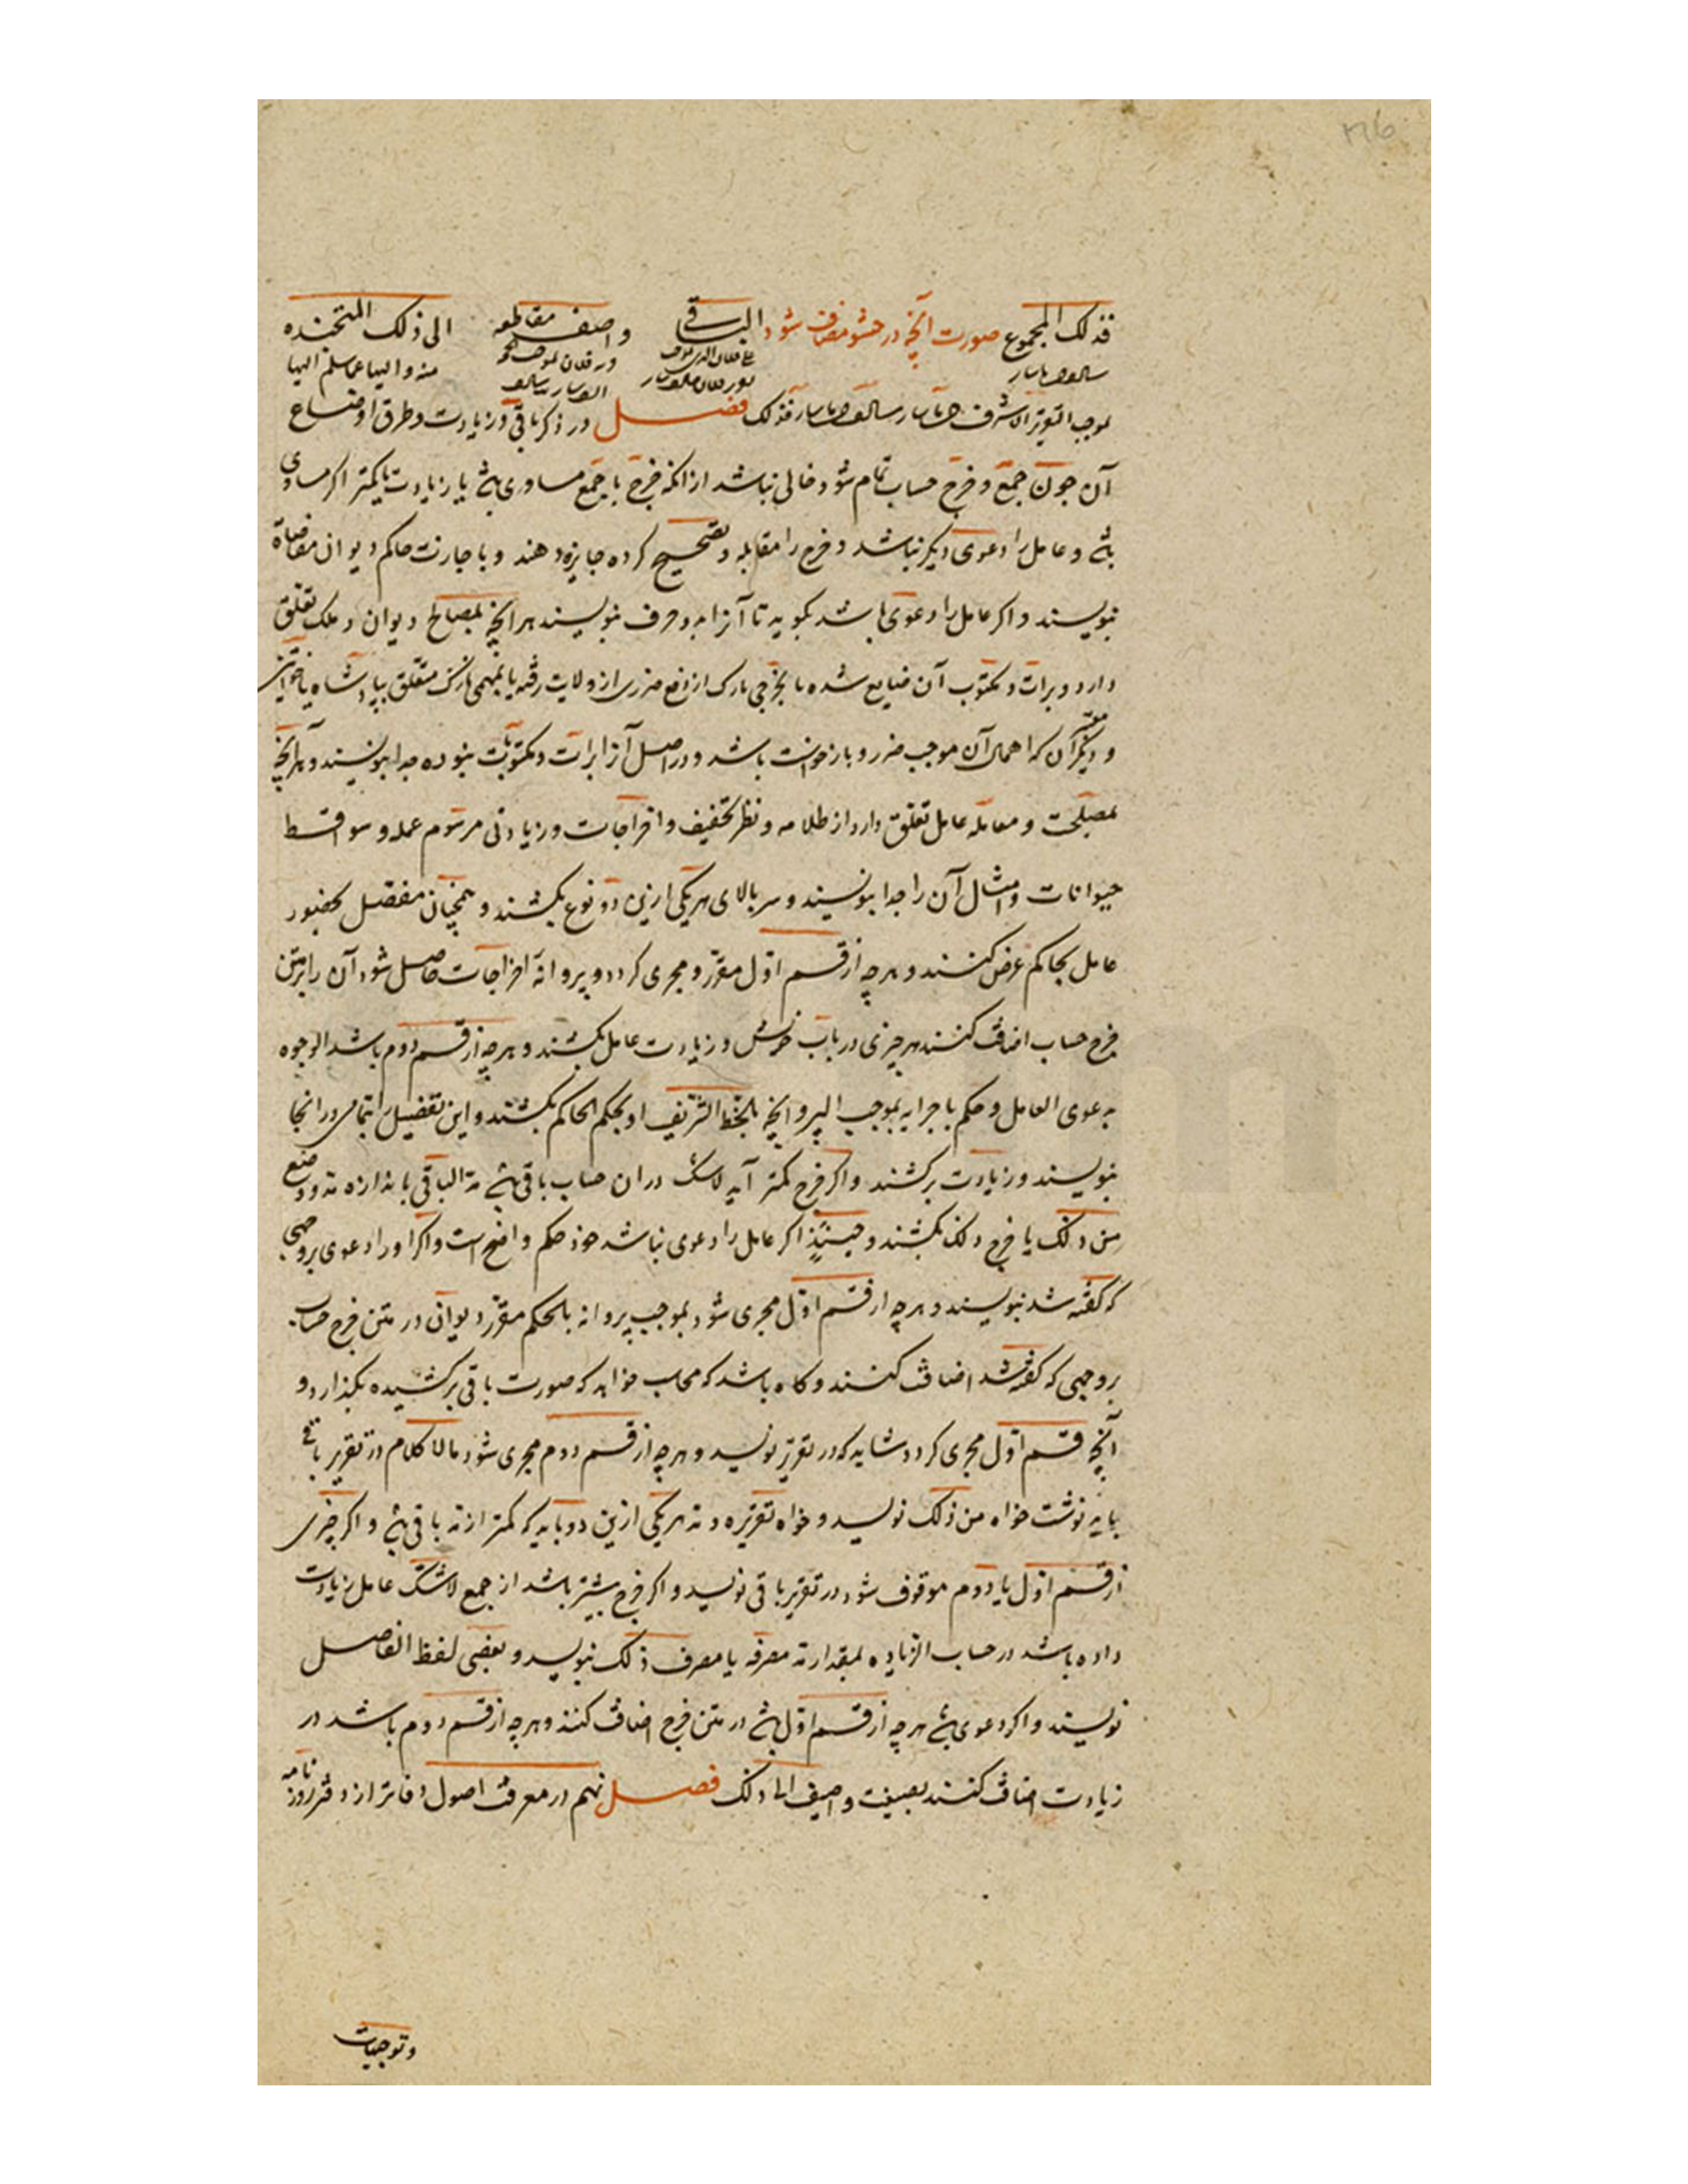 فذلک المجموع صورت آنچه در حشو مضاف شود الباقی واصف مقاطعه الی ذلک المتخذه
منه والیها عما سلم الیها
فذلک فصل در ذکر باقی و زیادت و طرق اوضاع
آن چون جمع و خرج حساب تمام شود خالی نباشد از انکه خرج با جمع مساوی بود یا زیادت یا کمتر اکر مساوی
بود و عامل را دعوی دیکر نباشد و خرج را مقابله و تصحیح کرده جایزه دهند و باجازت حاکم دیوان مفاصاة
نبویسند و اکر عامل را دعوی باشد بکوید تا آنرا بدو حرف نبویسند هر آنچه بمصالح دیوان و ملک تعلق
دارد و برات و مکتوب آن ضایع شده یا بخرجی نازک از دفع ضرری از ولایت رفته یا بمهمی نازک متعلق بپادشاه یا خواتین
و دیکر آن که اهمال آن موجب ضرر و بازخواست باشد و در اصل آنرا برات و مکتوبات نبوده جدا بنویسند و هر آنچه
بمصلحت و معامله عامل تعلق دارد از ظلامه و نظر تخفیف و اخراجات و زیادتی مرسوم عمله و سواقط
حیوانات و امثال آن را جدا بنویسند و سر بالای هر یکی ازین دو نوع بکشند و همچنان مفصل بحضور
عامل بحاکم عرض کنند و هر چه از قسم اول مقرر و مجری کردد و پروانهٔ اخراجات حاصل شود آن را بر متن
خرج حساب اضافت کنند هر چیزی در باب خویش و زیادت عامل بکشند و هر چه از قسم دوم باشد الوجوه
بدعوی العامل و حکم باجرایه بموجب البروانچه بالخط الشریف او بحکم الحاکم بکشند و این تفصیل را بتمامی در انجا
نبویسند و زیادت برکشند و اکر خرج کمتر آید لاشک در ان حساب باقی بود مد الباقی باندازه مد و وضع
من ذلک یا خرج ذلک بکشند و حینئذ اکر عامل را دعوی نباشد خود حکم واضح است و اکر او را دعوی بر وجهی
که کفته شد نبویسند و هر چه از قسم اول مجری شود بموجب پروانه بالحکم مقرر دیوان در متن خرج حساب
بر وجهی که کفته شد اضافت کنند و کاه باشد که محاسب خواهد که صورت باقی برکشیده بکذارد و
آنچه قسم اول مجری کردد شاید که در تقریر نویسد و هر چه از قسم دوم مجری شود مالا کلام در تقریر باقی
باید نوشت خواه من ذلک نویسد و خواه تقریره و مد هر یکی ازین دو باید که کمتر از مد باقی بود و اکر چیزی
از قسم اول یا دوم موقوف شود در تقریر باقی نویسد و اکر خرج بیشتر باشد از جمع لاشک عامل زیادت
داده باشد در حساب الزیاده بمقدار مد مصرفه یا مصرف ذلک نبویسد و بعضی لفظ الفاصل
نویسند و اکر دعوی بود هر چه از قسم اول بود در متن خرج اضافت کنند و هر چه از قسم دوم باشد در
زیادت اضافت کنند بصیغت واضیف الی ذلک فصل نهم در معرفت اصول دفاتر از دفتر روزنامه
و توجیهات